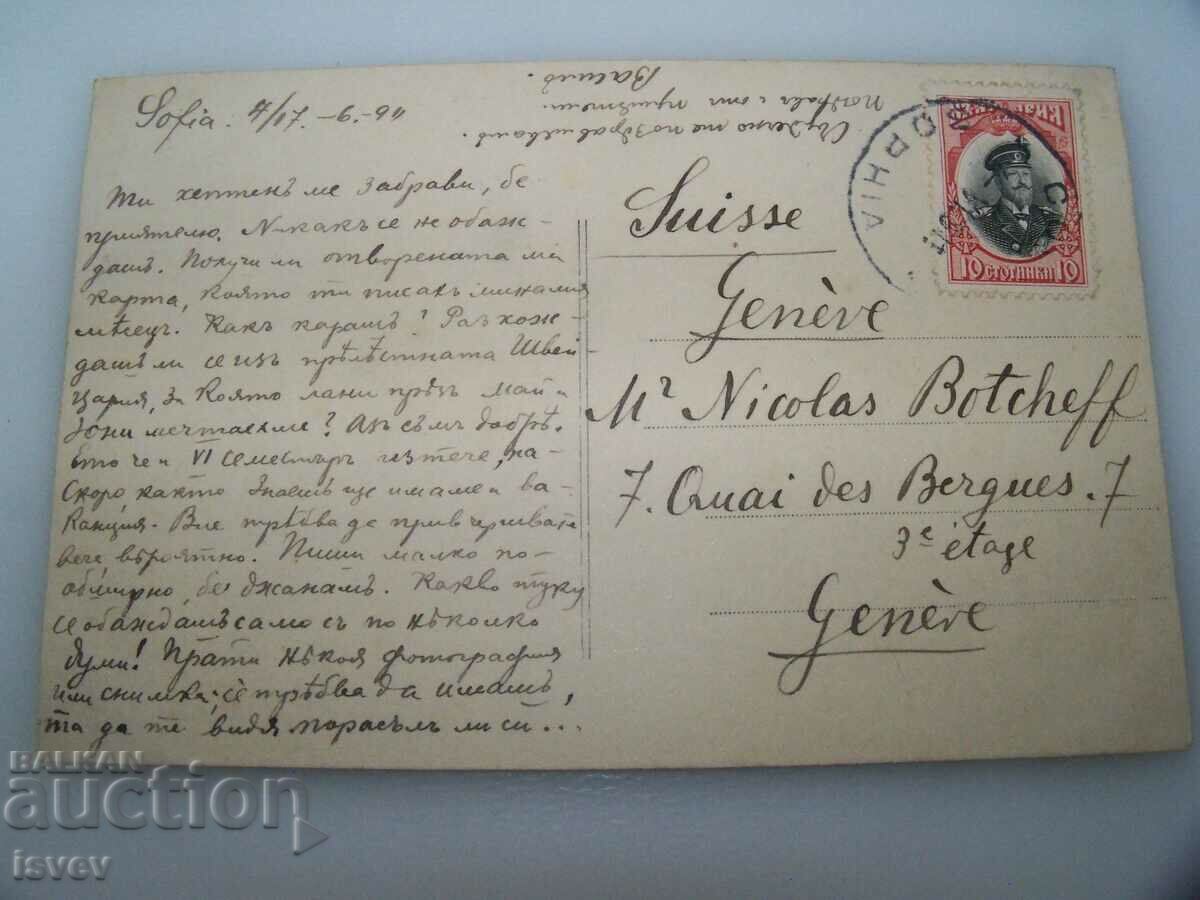 Sofia. 4/17.-6.-911
Ти хептенъ ме забрави, бе
приятелю. Никакъ се не обаж-
дашъ. Получи ли отворената ми
карта, която ти писахъ миналия
мѣсецъ. Какъ карашъ? Разхож-
дашъ ли се изъ прѣлѣстната Швей-
цария, за която лани прѣзъ май и
юни мечтаехме? Азъ съмъ добрѣ.
Ето че и VI семестъръ изтече, на-
скоро както знаешъ ще имаме и ва-
канция. Вие трѣбва да привършвате
вече, вѣроятно. Пиши малко по-
обширно, бе джанъмъ. Какво тукъ
се обаждашъ само съ по нѣколко
думи! Прати нѣкоя фотография
или снимка; се трѣбва да имашъ,
та да те видя порасълъ ли си...
Сърдечно те поздравлявамъ.
Поздрави отъ приятели.
Василъ.
Suisse
Genève
Mr Nicolas Botcheff
7. Quai des Bergues. 7
3e étage
Genève
10 СТОТИНКИ 10
BALKAN
auction
isvev